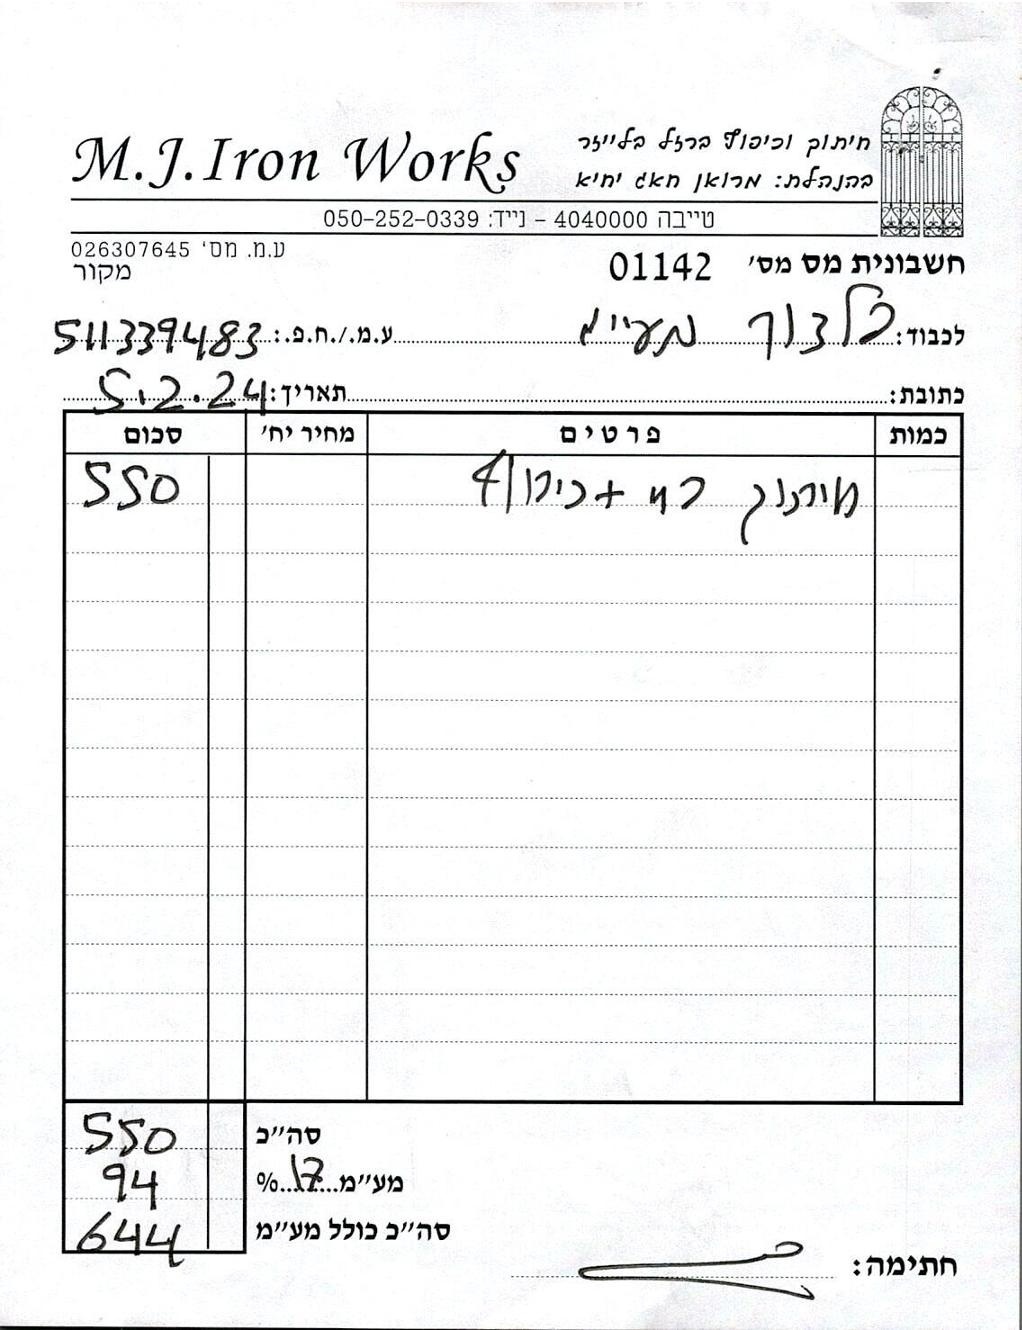 M.J.Iron Works
חיתוך וכיפוף ברזל בלייזר
בהנהלת: מרואן חאג יחיא
טייבה 4040000 - נייד: 050-252-0339
ע.מ. מס' 026307645
מקור
חשבונית מס מס' 01142
לכבוד: פלצוך תעיים ע.מ./ח.פ.: 511339483
כתובת: תאריך: 5.2.24
כמות פרטים מחיר יח' סכום
חיתוך פח + כיפוף 550
סה"כ 550
מע"מ 17% 94
סה"כ כולל מע"מ 644
חתימה: